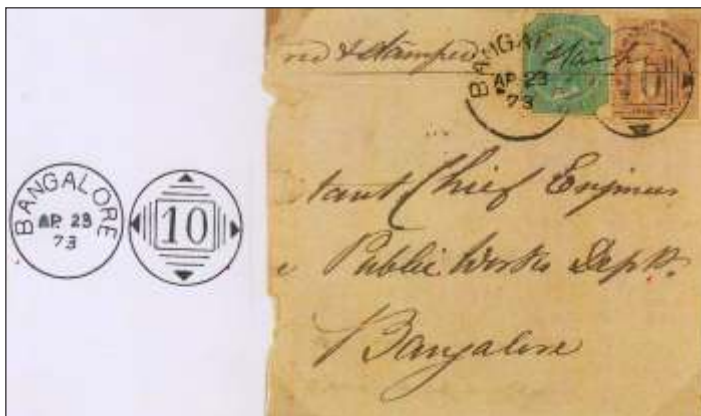 BANGALORE
AP. 23
73
10
& stamped
BANGAL
AP 23
73
10
tant Chief Engineer
Public Works Dept.
Bangalore